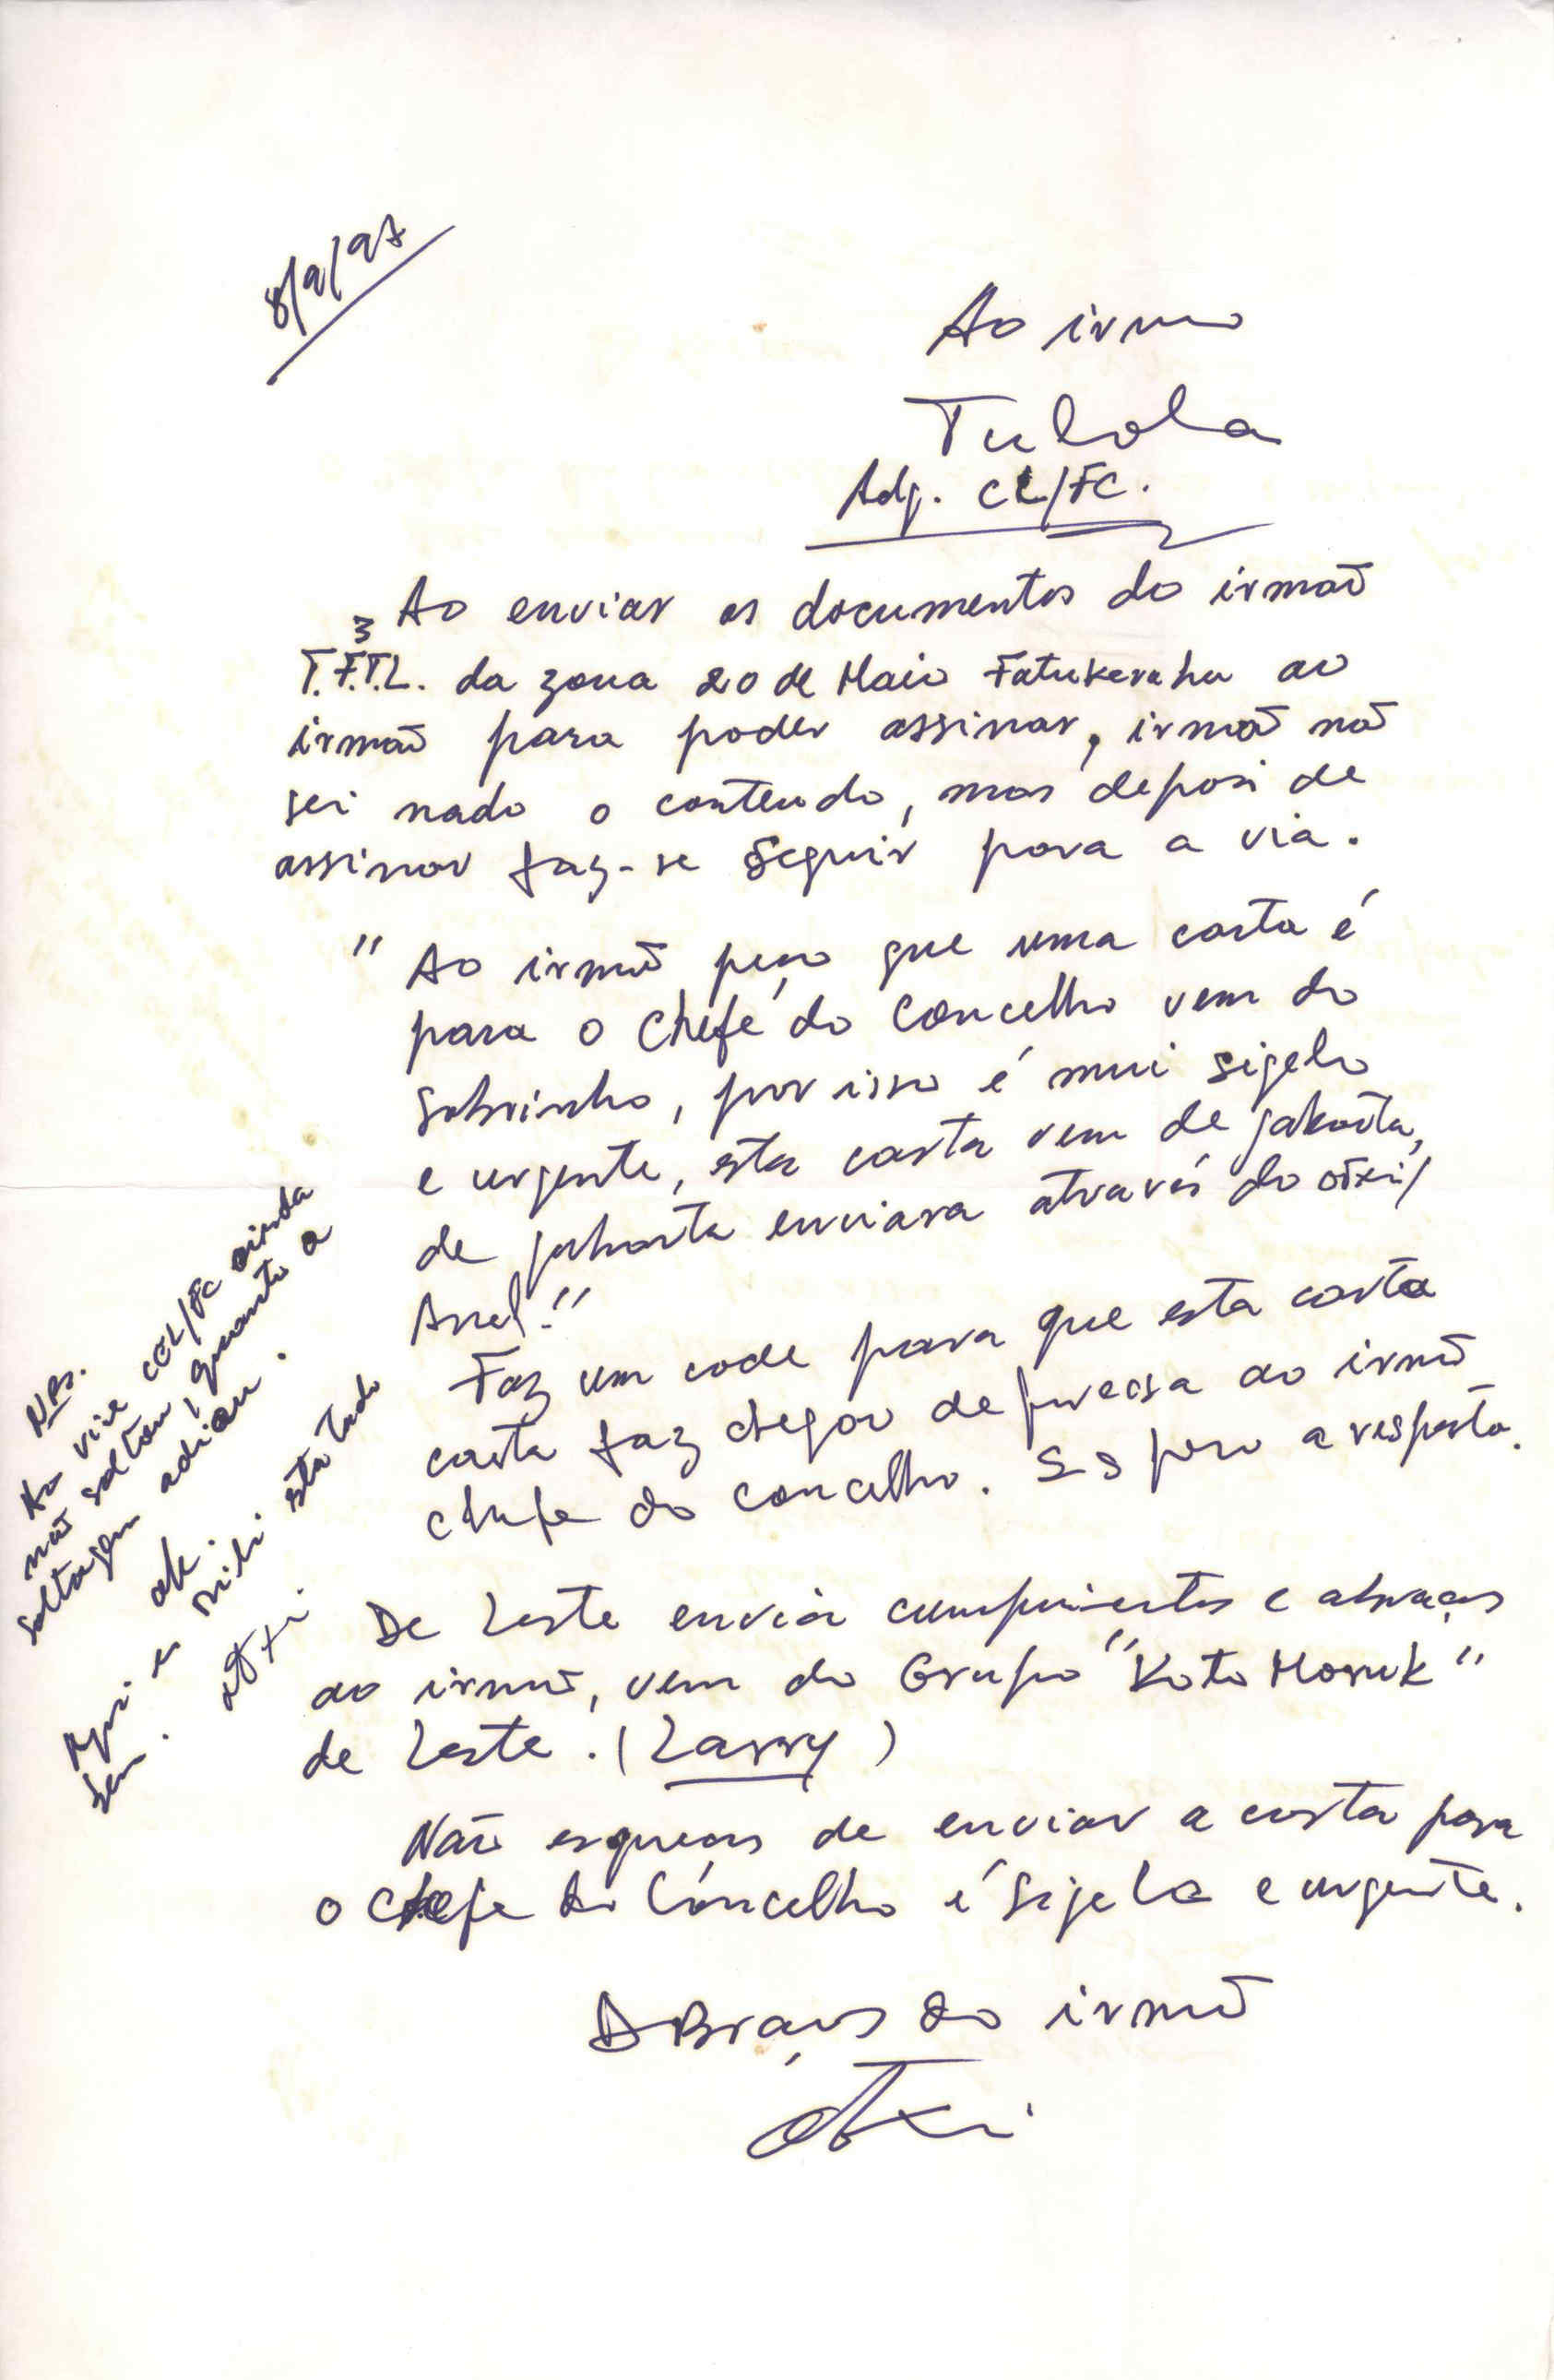 8/9/97
Ao irmão
Tulola
Adj. CL/FC.
Ao enviar os documentos do irmão
3
T.F.T.L. da zona 20 de Maio Fatukerahu ao
irmão para poder assinar, irmão nã
sei nado o conteudo, mas deposi de
assinar faz-se Seguir para a via.
" Ao irmão peço que uma carta é
para o Chefe do Concelho vem do
Sobrinho, por isso é mui sigelo
e urgente, esta carta vem de jakarta,
de jakarta enviara através do otxi/
Anel."
Faz um code para que esta carta
carta faz chegar depressa ao irmão
Chefe do Concelho. So peço a resposta.
De Leste envia cumprimentos e abraços
ao irmão, vem do Grupo "Koto Moruk"
de Leste. (Larry)
Não esqueças de enviar a carta para
o Chefe do Concelho é Sigela e urgente.
ABraços do irmão
Otxi
NBs.
Ao vice CEL/FC ainda
não soltou, quanto a
soltagem adiou.
ok.
Aqui em Dili esta tudo
bem. Otxi